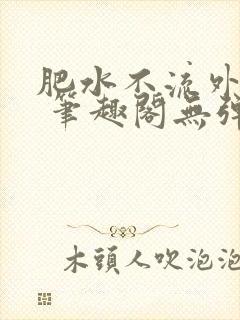 肥水不流外
筆趣閣無彈
木頭人吹泡泡